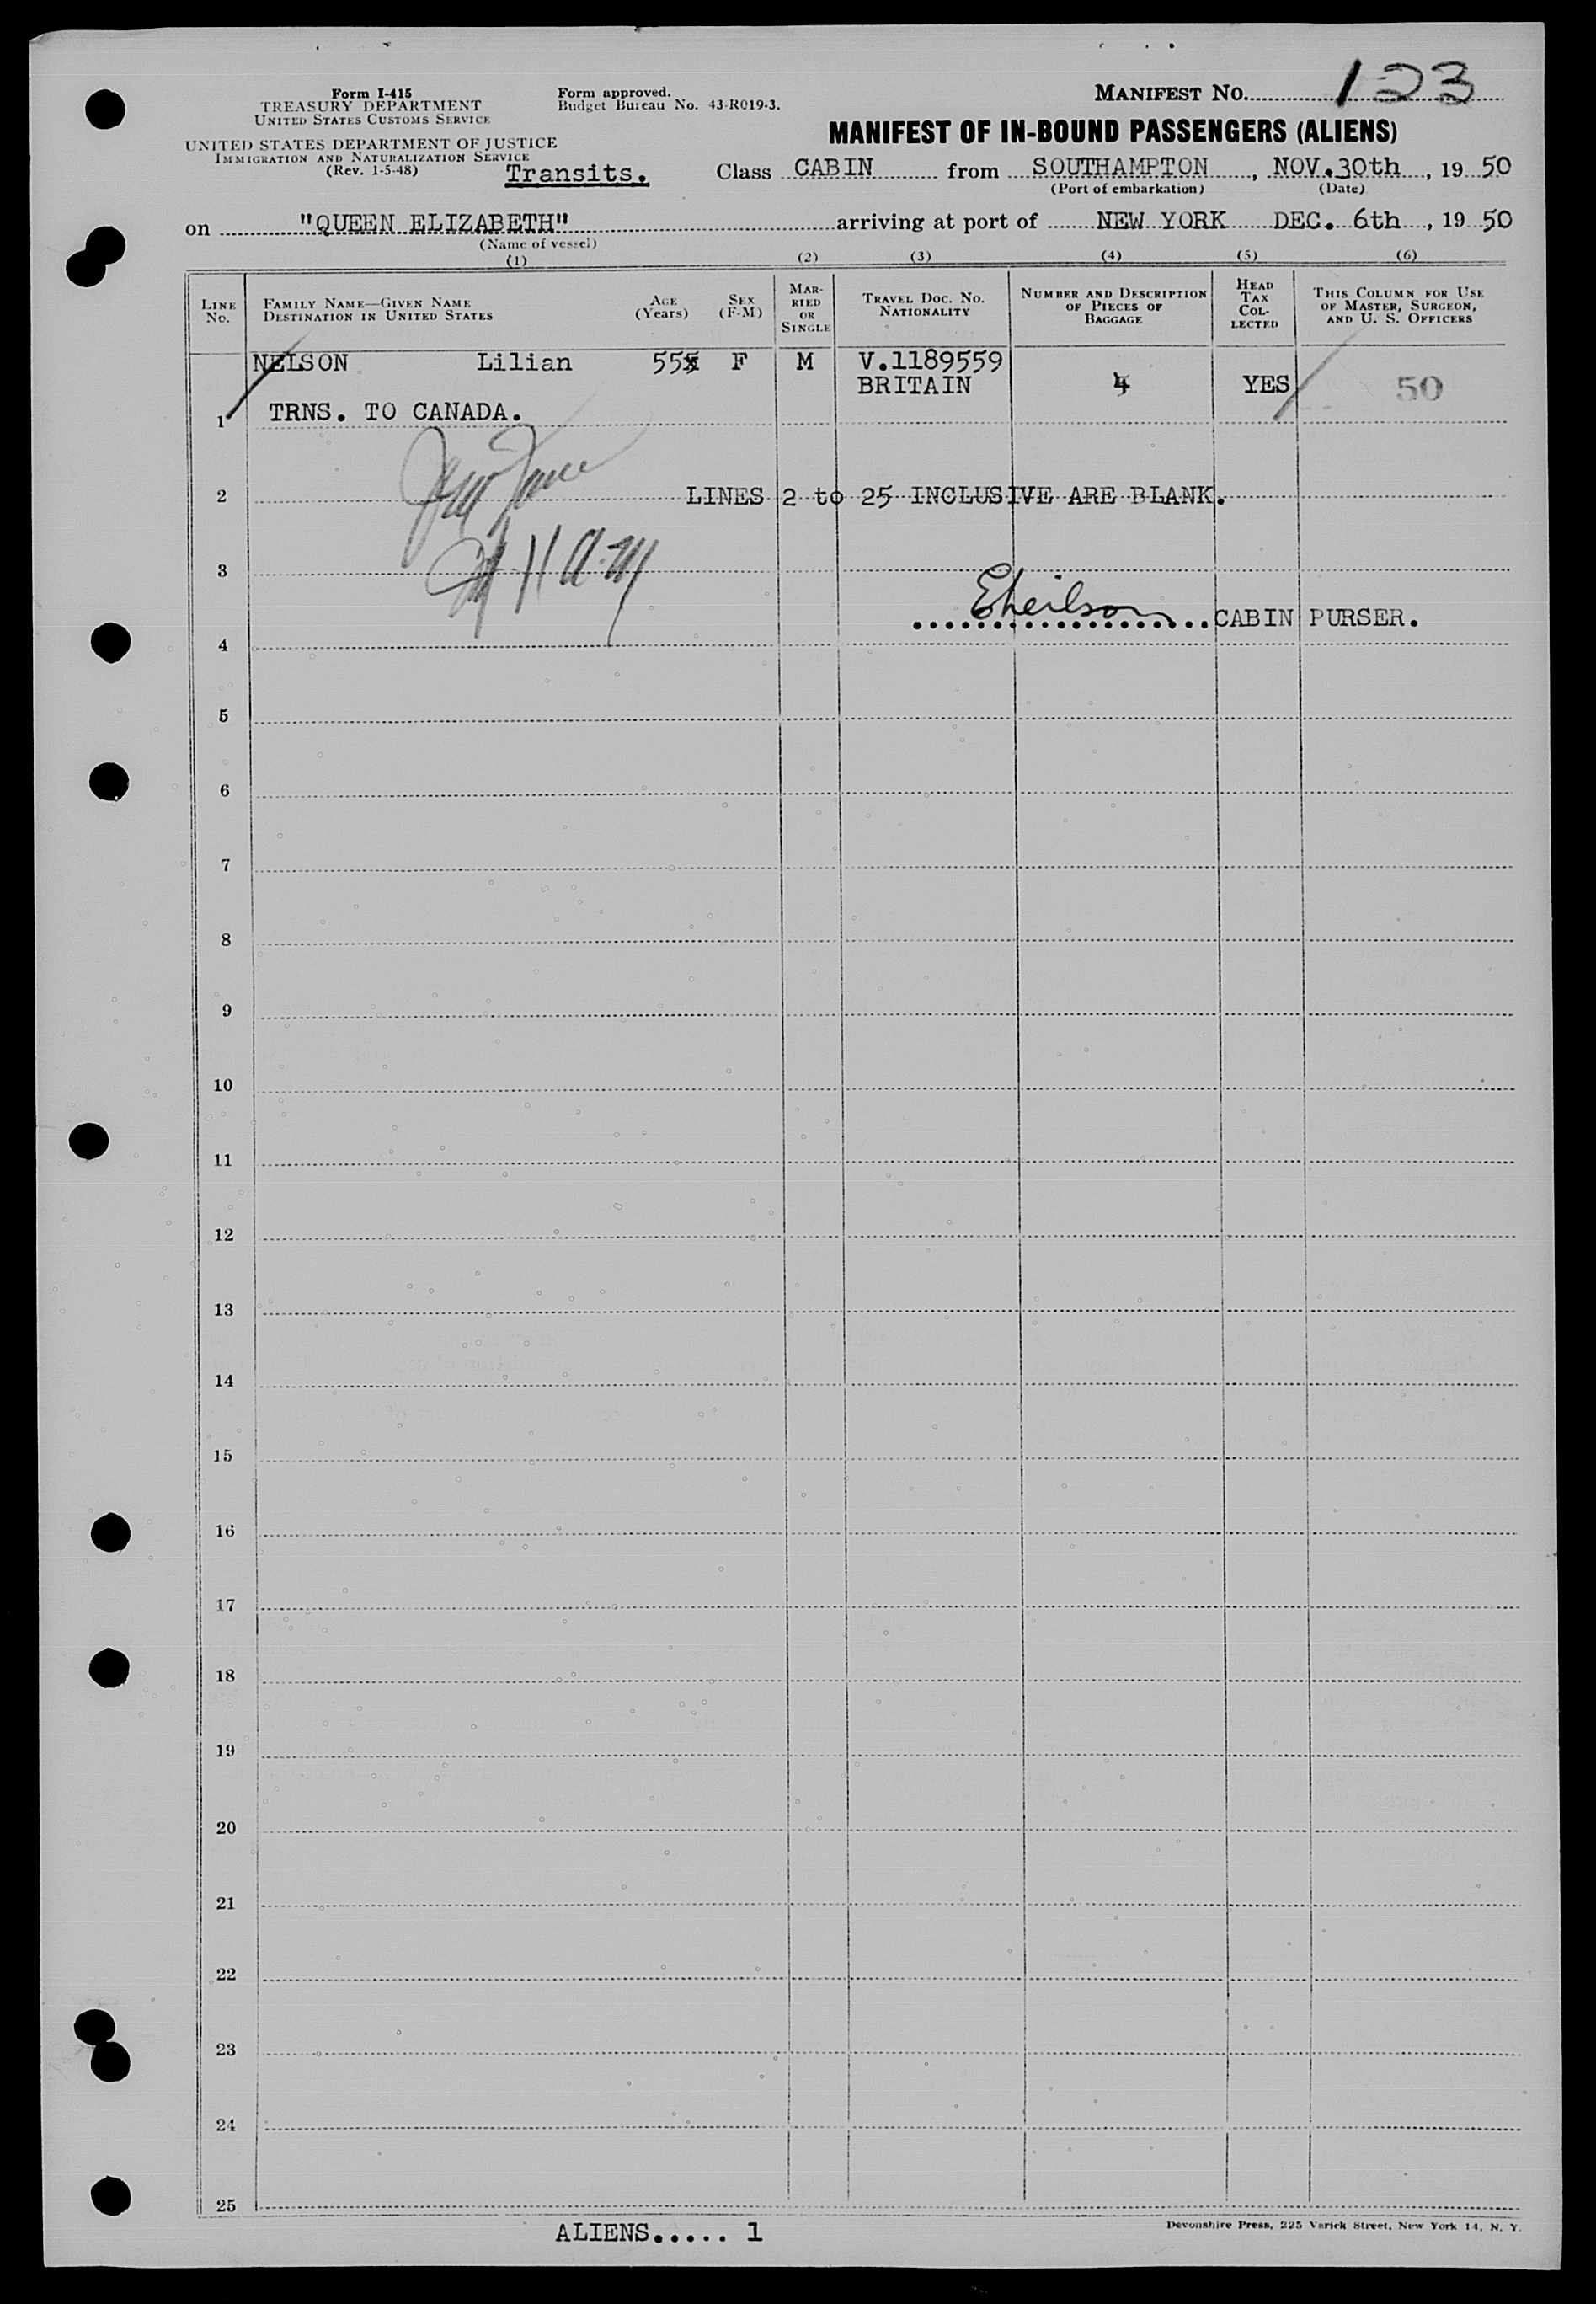 Form I-415
TREASURY DEPARTMENT
UNITED STATES CUSTOMS SERVICE
UNITED STATES DEPARTMENT OF JUSTICE
IMMIGRATION AND NATURALIZATION SERVICE
(Rev. 1-5-48)
Form approved.
Budget Bureau No. 43-R019-3.
Transits.
MANIFEST NO. 123
MANIFEST OF IN-BOUND PASSENGERS (ALIENS)
Class CABIN from SOUTHAMPTON, NOV.30th, 1950
(Port of embarkation) (Date)
on "QUEEN ELIZABETH" arriving at port of NEW YORK DEC. 6th, 1950
(Name of vessel)
(1) (2) (3) (4) (5) (6)
LINE NO.
FAMILY NAME—GIVEN NAME
DESTINATION IN UNITED STATES
AGE (Years)
SEX (F-M)
MARRIED OR SINGLE
TRAVEL DOC. NO. NATIONALITY
NUMBER AND DESCRIPTION OF PIECES OF BAGGAGE
HEAD TAX COLLECTED
THIS COLUMN FOR USE OF MASTER, SURGEON, AND U. S. OFFICERS
NELSON Lilian 55 F M V.1189559
BRITAIN 4 YES 50
1 TRNS. TO CANADA.
2 LINES 2 to 25 INCLUSIVE ARE BLANK.
3
CABIN PURSER.
4
5
6
7
8
9
10
11
12
13
14
15
16
17
18
19
20
21
22
23
24
25
ALIENS..... 1
Devonshire Press, 225 Varick Street, New York 14, N. Y.